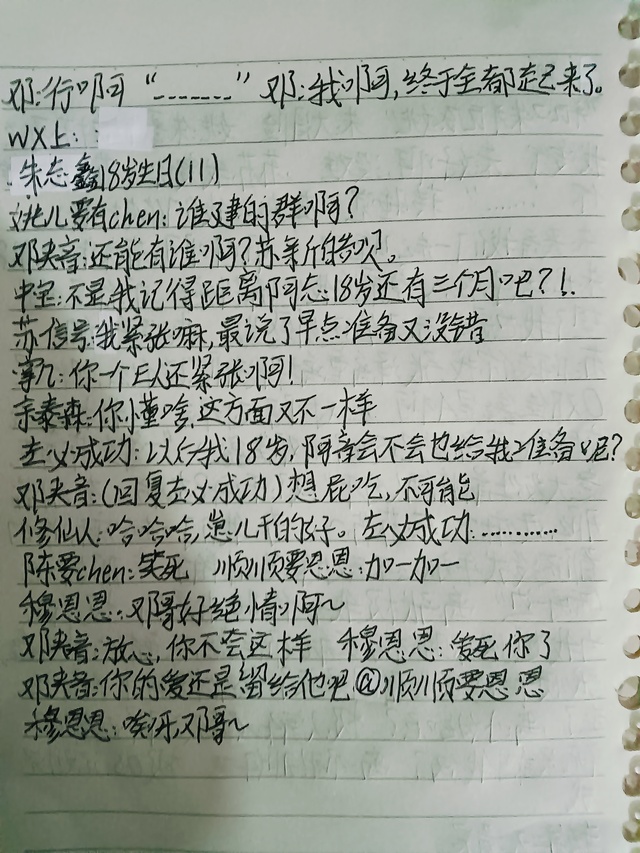 邓:行啊阿“-------”邓:我啊阿,终于全都起来了。
WX上:
朱志鑫18岁生日(11)
姚儿要有chen:谁建的群啊?
邓夹音:还能有谁啊?苏新皓呗。
中宝:不是我记得距离阿志18岁还有三个月吧?!
苏信号:我紧张嘛,最说了早点准备又没错
掌九:你一个E人还紧张啊!
余泰森:你懂啥,这方面又不一样
左必成功:以后我18岁,阿 会不会也给我准备呢?
邓夹音:(回复左必成功)想屁吃,不可能
修仙人:哈哈哈,崽儿干的好。左必成功:…………
陈要chen:笑死 顺顺要恩恩:加一加一
穆恩恩:邓哥好绝情啊~
邓夹音:放心,你不会这样 穆恩恩:爱死你了
邓夹音:你的爱还是留给他吧@顺顺要恩恩
穆恩恩:唉呀,邓哥~